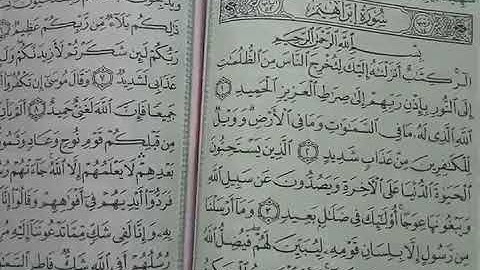 سُورَةُ إِبْرَاهِيمَ
بِسْمِ ٱللَّهِ ٱلرَّحْمَٰنِ ٱلرَّحِيمِ
الٓر ۚ كِتَٰبٌ أَنزَلْنَٰهُ إِلَيْكَ لِتُخْرِجَ ٱلنَّاسَ مِنَ ٱلظُّلُمَٰتِ
إِلَى ٱلنُّورِ بِإِذْنِ رَبِّهِمْ إِلَىٰ صِرَٰطِ ٱلْعَزِيزِ ٱلْحَمِيدِ ١
ٱللَّهِ ٱلَّذِى لَهُۥ مَا فِى ٱلسَّمَٰوَٰتِ وَمَا فِى ٱلْأَرْضِ ۗ وَوَيْلٌ
لِّلْكَٰفِرِينَ مِنْ عَذَابٍ شَدِيدٍ ٢ ٱلَّذِينَ يَسْتَحِبُّونَ
ٱلْحَيَوٰةَ ٱلدُّنْيَا عَلَى ٱلْءَاخِرَةِ وَيَصُدُّونَ عَن سَبِيلِ ٱللَّهِ
وَيَبْغُونَهَا عِوَجًا ۚ أُو۟لَٰٓئِكَ فِى ضَلَٰلٍۭ بَعِيدٍ ٣ وَمَآ أَرْسَلْنَا
مِن رَّسُولٍ إِلَّا بِلِسَانِ قَوْمِهِۦ لِيُبَيِّنَ لَهُمْ ۖ فَيُضِلُّ ٱللَّهُ
ذَٰلِكُم بَلَآءٌ مِّن رَّبِّكُمْ عَظِيمٌ
رَبُّكُمْ لَئِن شَكَرْتُمْ لَأَزِيدَنَّكُمْ ۖ وَلَئِن
عَذَابِى لَشَدِيدٌ ٧ وَقَالَ مُوسَىٰٓ إِن تَكْفُرُوٓا۟
جَمِيعًا فَإِنَّ ٱللَّهَ لَغَنِىٌّ حَمِيدٌ ٨ أَلَمْ يَأْ
مِن قَبْلِكُمْ قَوْمِ نُوحٍ وَعَادٍ وَثَمُو
بَعْدِهِمْ ۛ لَا يَعْلَمُهُمْ إِلَّا ٱللَّهُ ۚ جَآءَتْهُمْ رُسُ
فَرَدُّوٓا۟ أَيْدِيَهُمْ فِىٓ أَفْوَٰهِهِمْ وَقَالُوٓا۟ إِنَّا
بِهِۦ وَإِنَّا لَفِى شَكٍّ مِّمَّا تَدْعُونَنَآ إِلَيْهِ مُرِ
رُسُلُهُمْ أَفِى ٱللَّهِ شَكٌّ فَاطِرِ ٱلسَّمَٰو